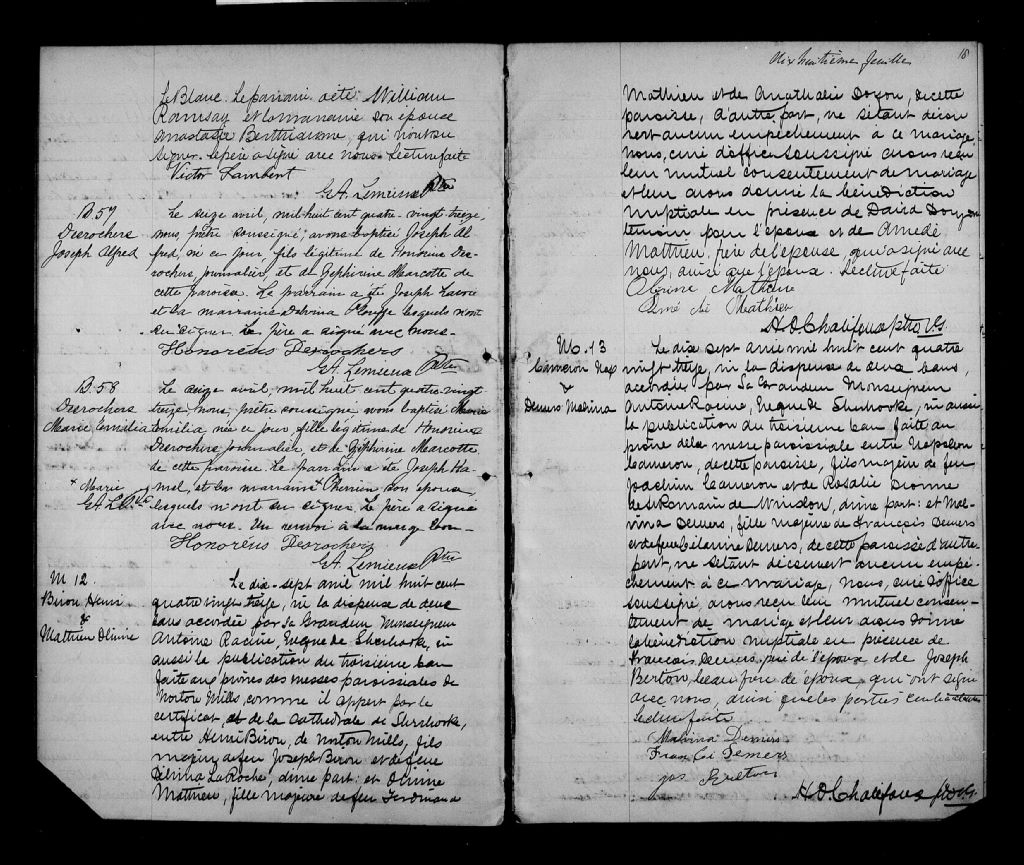 LeBlanc. Le parrain a été William
Ramsay et la marraine son épouse
Anastasie Berthiaume, qui n'ont su
signer. Le père a signé avec nous. Lecture faite
Victor Lambert
G.A. Lemieux Ptre
B.57
Desrochers
Joseph Alfred
Le seize avril, mil-huit cent quatre-vingt-treize,
nous, prêtre soussigné, avons baptisé Joseph Al-
fred, né ce jour, fils légitime de Honorius Des-
rochers journalier, et de Zéphirine Marcotte de
cette paroisse. Le parrain a été Joseph
et la marraine lesquels n'ont
su signer. Le père a signé avec nous.
Honoréus Desrochers
G.A. Lemieux Ptre
B.58
Desrochers
Marie Emilia
Le seize avril, mil huit cent quatre-vingt
treize, nous, prêtre soussigné, avons baptisé Marie
Emilia, née ce jour, fille légitime de Honorius
Desrochers, journalier, et de Zéphirine Marcotte
de cette paroisse. Le parrain a été Joseph Ha-
mel, et la marraine + Therrien son épouse
+ Marie
G.A.L. Ptre
lesquels n'ont su signer. Le père a signé
avec nous. Un renvoi à la marge bon-
Honoréus Desrochers
G.A. Lemieux Ptre
M 12.
Birou Henri
&
Mathieu Olivine
Le dix-sept avril mil huit cent
quatre vingt treize, vu la dispense de deux
bans accordée par Sa Grandeur Monseigneur
Antoine Racine, Evêque de Sherbrooke, vu
aussi la publication du troisième ban
faite aux prônes des messes paroissiales de
Norton Mills, comme il appert par le
certificat, et de la Cathédrale de Sherbrooke,
entre Henri Birou, de Norton Mills, fils
majeur de feu Joseph Birou et de feue
LaRoche, d'une part: et Olivine
Mathieu, fille majeure de feu Ferdinand
dix huitième feuille
18
Mathieu et de Anathalie Doyon, de cette
paroisse, d'autre part, ne s'étant décou
vert aucun empêchement à ce mariage,
nous, curé d'office soussigné avons reçu
leur mutuel consentement de mariage
et leur avons donné la bénédiction
nuptiale en présence de David Doyon
témoin pour l'époux et de Amédé
Mathieu, frère de l'épouse, qui a signé avec
nous, ainsi que l'époux. Lecture faite
Mathieu
Mathieu
H.O. Chalifoux ptre V.G.
M. 13
Cameron Nap
&
Demers Malvina
Le dix sept avril mil huit cent quatre
vingt treize, vu la dispense de deux bans,
accordée par Sa Grandeur Monseigneur
Antoine Racine, Evêque de Sherbrooke, vu aussi
la publication du troisième ban faite au
prône de la messe paroissiale entre Napoléon
Cameron, de cette paroisse, fils majeur de feu
Joachim Cameron et de Rosalie Dionne
de St Romain de Winslow, d'une part: et Mal-
vina Demers, fille majeure de François Demers
et de feue Demers, de cette paroisse d'autre
part, ne s'étant découvert aucun empê-
chement à ce mariage, nous, curé d'office
soussigné, avons reçu leur mutuel consen-
tement de mariage et leur avons donné
la bénédiction nuptiale en présence de
François Demers, père de l'épouse et de Joseph
Berton, beau frère de l'époux, qui ont signé
avec nous, ainsi que les parties contractantes
Lecture faite
Malvina Demers
Demers
Jos Breton
H.O. Chalifoux ptre V.G.